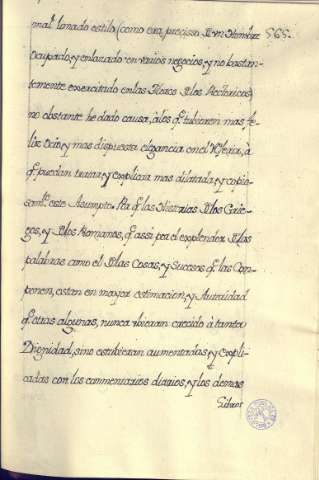 mal limado estilo (como era preciso D Vn Hombre 565.
Ocupado, y enlazado en varios negocios, y no bastan-
temente exercitado en las D los Rethoricos)
no obstante he dado causa, à los q̃ tubieren mas fe-
liz Ocio, y mas dispuesta elegancia en el , à
q̃ puedan tratar, y explicar mas dilatada, y copio-
sam.te este Asumpto. Por q̃ las Historias D los Grie-
gos, y D los Romanos, q̃ assi por el explendor D las
palabras como el D las Cosas, y Sucesos q̃ las Com-
ponen, estan en mayor estimacion, y Autoridad
q̃ otras algunas, nunca vbieran crecido à tanta
Dignidad, si no estubieran aumentadas, y expli-
cadas con los commentarios diarios, y los demas
Libros